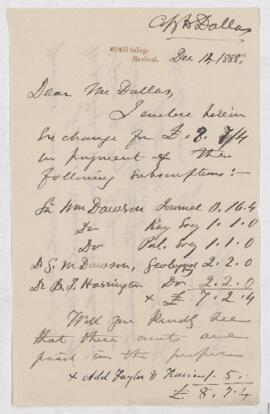 Copy to Dallas
McGill College,
Montreal.
Dec 12, 1888.
Dear Mr Dallas,
I enclose herein
Exchange for £8. 7/4
in payment of the
following subscriptions:—
Sir Wm Dawson Journal 0.16.4
Do Ray Socy 1.1.0
Do Pal. Socy 1.1.0
Dr G. M Dawson, Geological Socy 2.2.0
Dr B. J. Harrington Do 2.2.0
x £ 7.2.4
Will you kindly see
that these amts are
paid in the proper
x Add Taylor & Francis 1.5.
£ 8.7.4